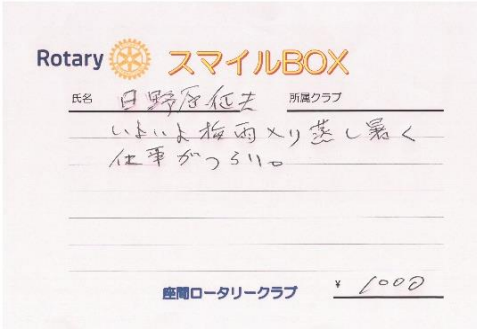 Rotary スマイルBOX
氏名 日野原征夫 所属クラブ
いよいよ梅雨入り蒸し暑く
仕事がつらい。
座間ロータリークラブ ¥ 1000